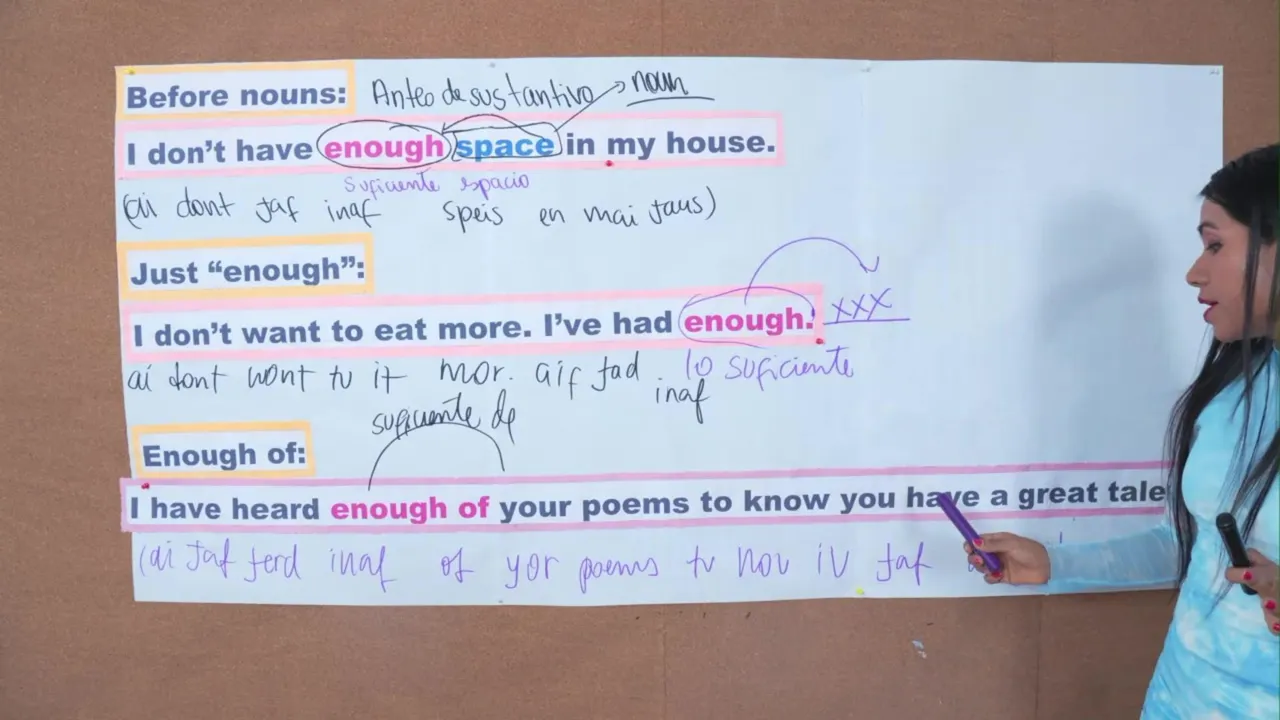 Before nouns: Antes de sustantivo noun
I don't have enough space in my house.
suficiente espacio
(ai dont jaf inaf speis en mai jaus)
Just “enough”:
I don't want to eat more. I've had enough. xxx
ai dont wont tu it mor. aif jad inaf
lo suficiente
suficiente de
Enough of:
I have heard enough of your poems to know you have a great tale
(ai jaf jerd inaf of yor poems tu nou iu jaf